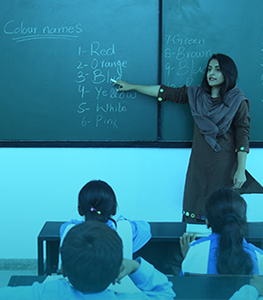 Colour names
1- Red
2- Orange
3- Bl
4- Yellow
5- White
6- Pink
7- Green
8- Brown
9- Bla